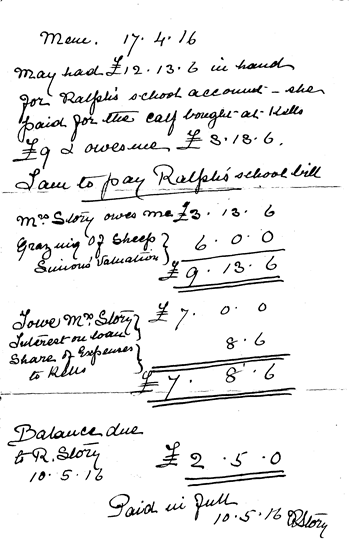 Mem. 17.4.16
May had £12.13.6 in hand
for Ralph's school account - she
paid for the calf bought at Kells
£9 & owes me £3.13.6.
I am to pay Ralph's school bill
Mrs Story owes me £3.13.6
Grazing of Sheep } 6.0.0
Valuation }
£9.13.6
I owe Mrs Story } £7.0.0
Interest on loan }
Share of Expenses } 8.6
to Kells }
£7.8.6
Balance due
to R. Story £2.5.0
10.5.16
Paid in full
10.5.16 RStory